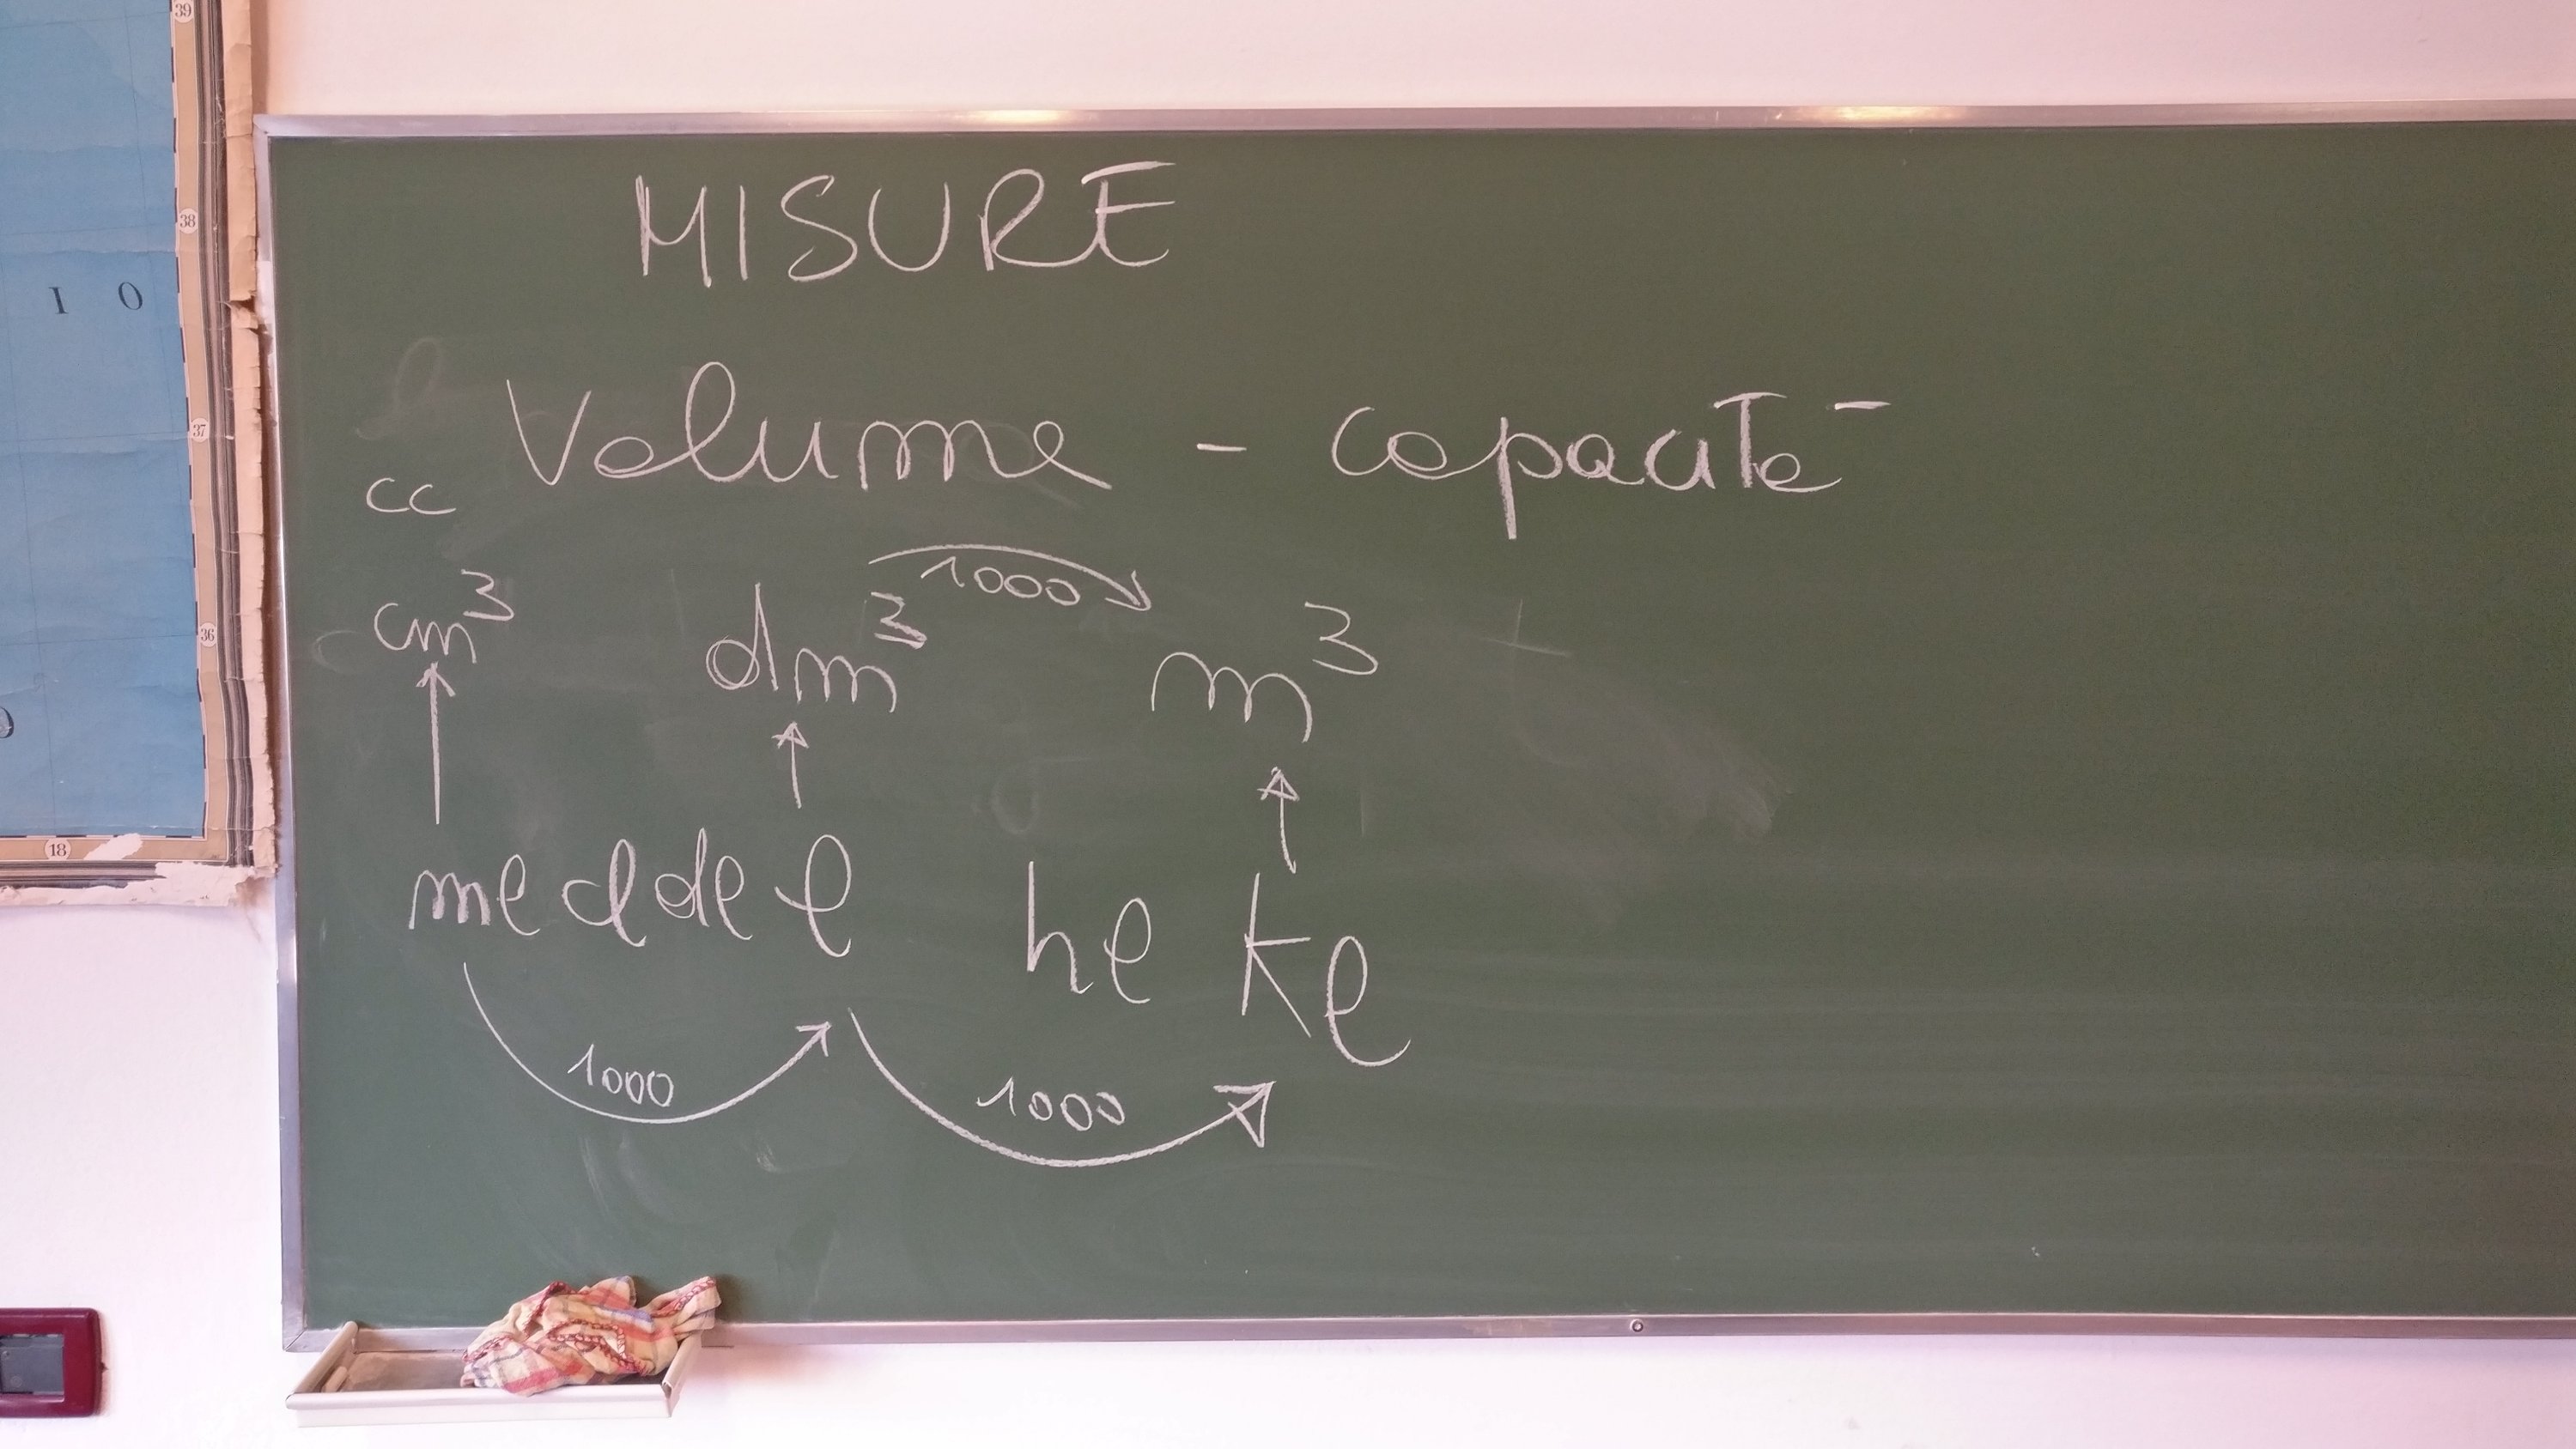 39
38
I O
37
36
18
MISURE
Volume - capacità
cc
1000
cm³ dm³ m³
ml cl dl l hl kl
1000 1000